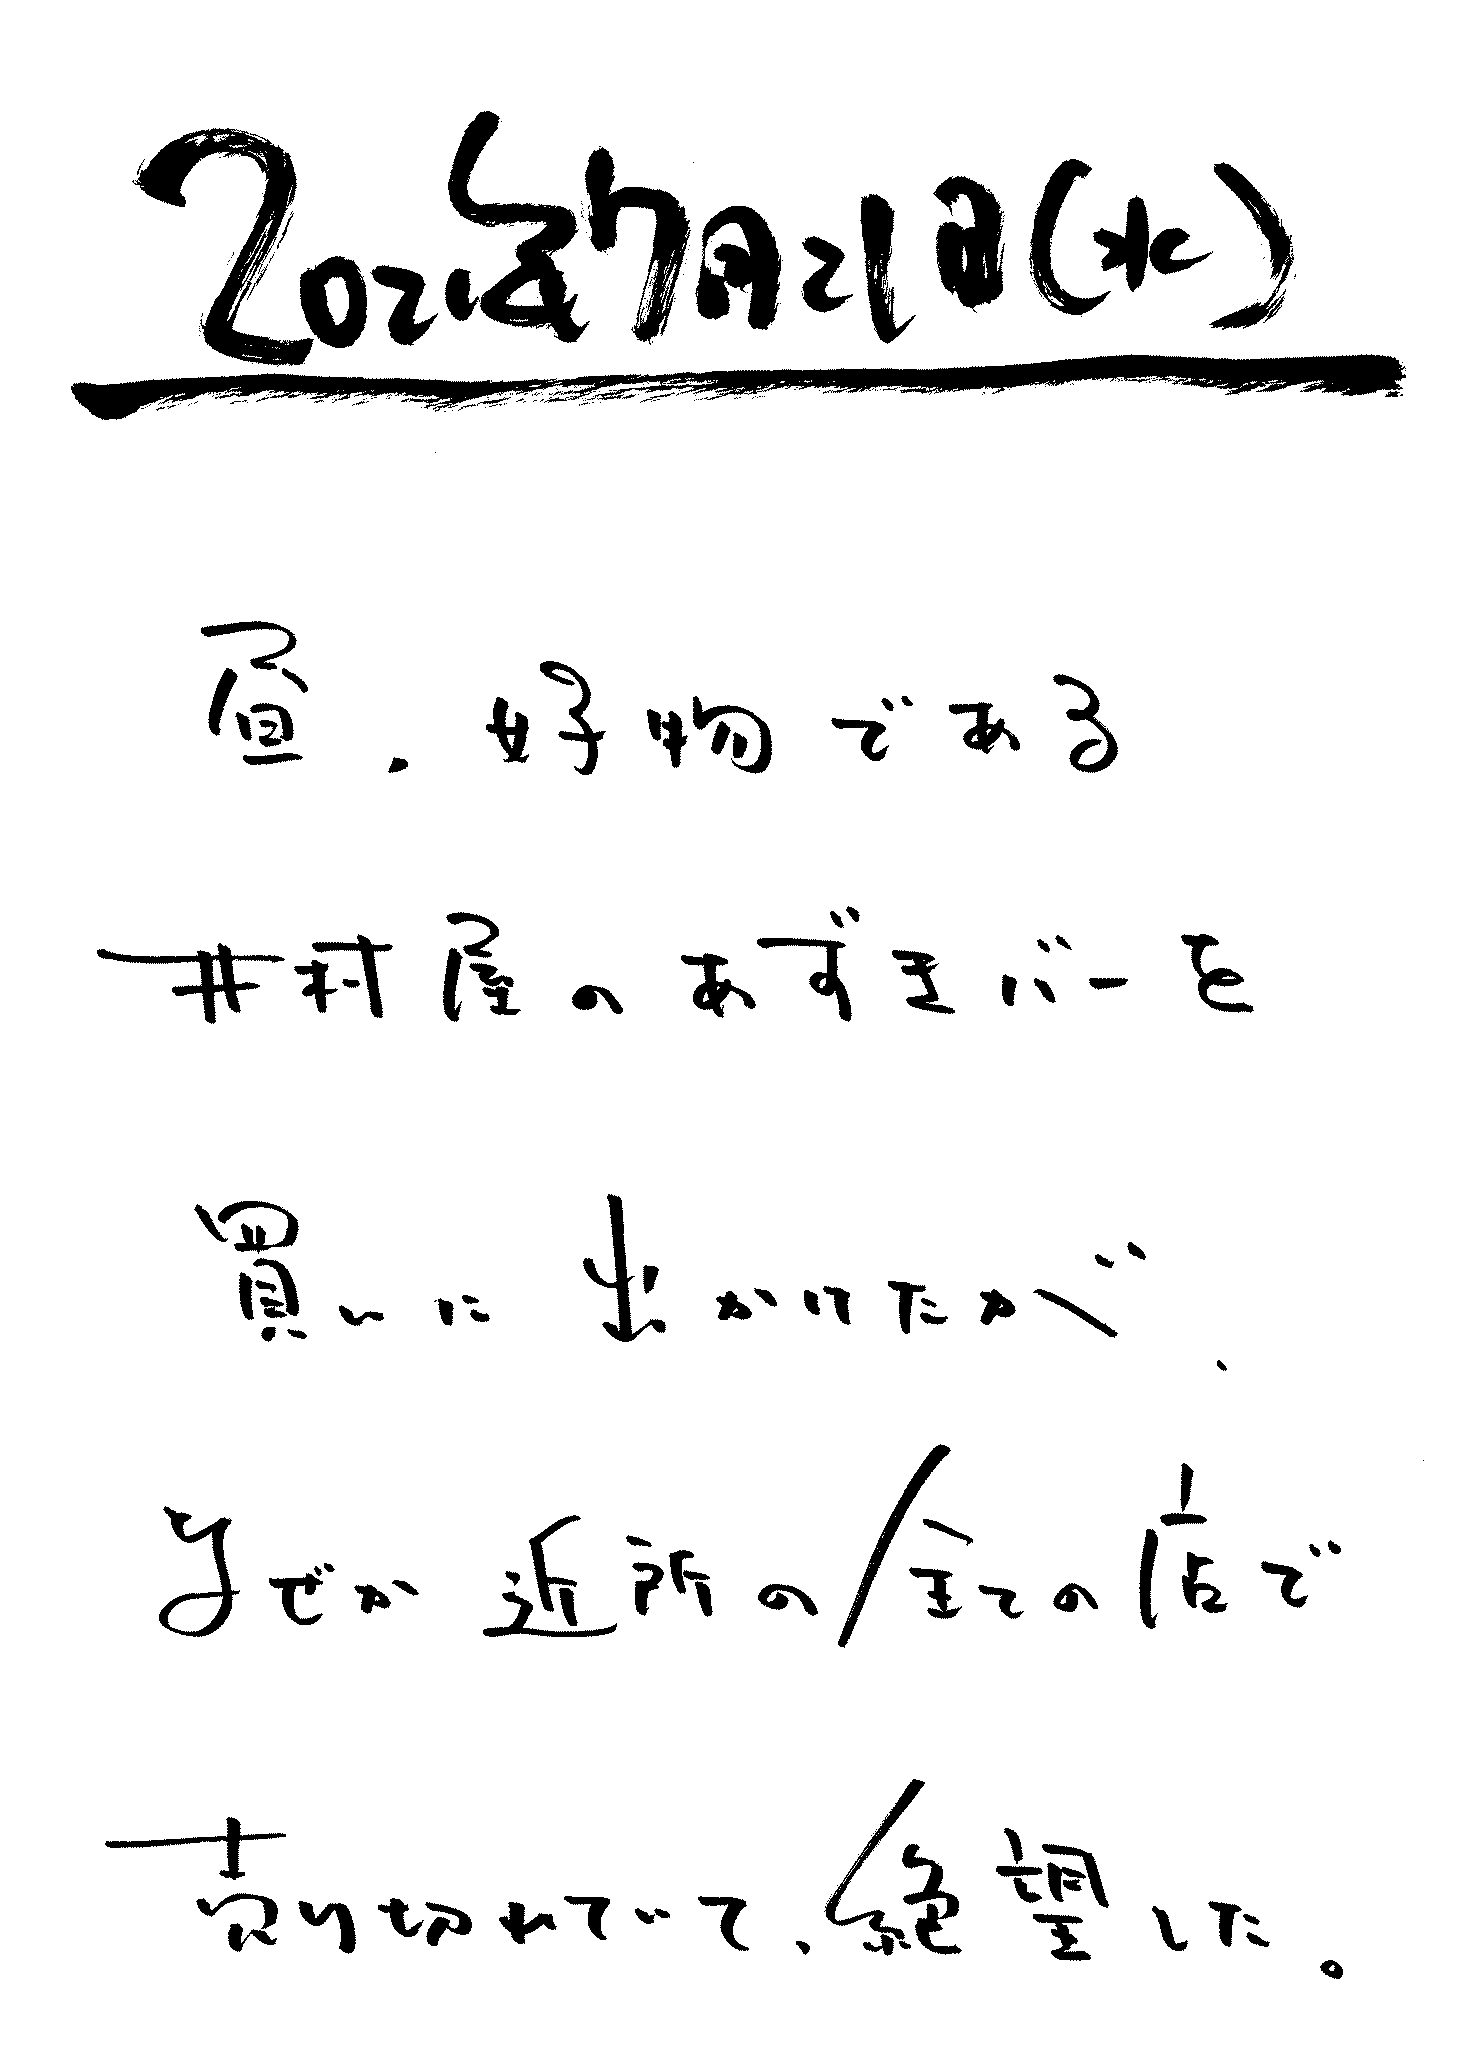 2021年7月21日(水)
昼、好物である
井村屋のあずきバーを
買いに出かけたが、
なぜか近所の全ての店で
売り切れでいて、絶望した。